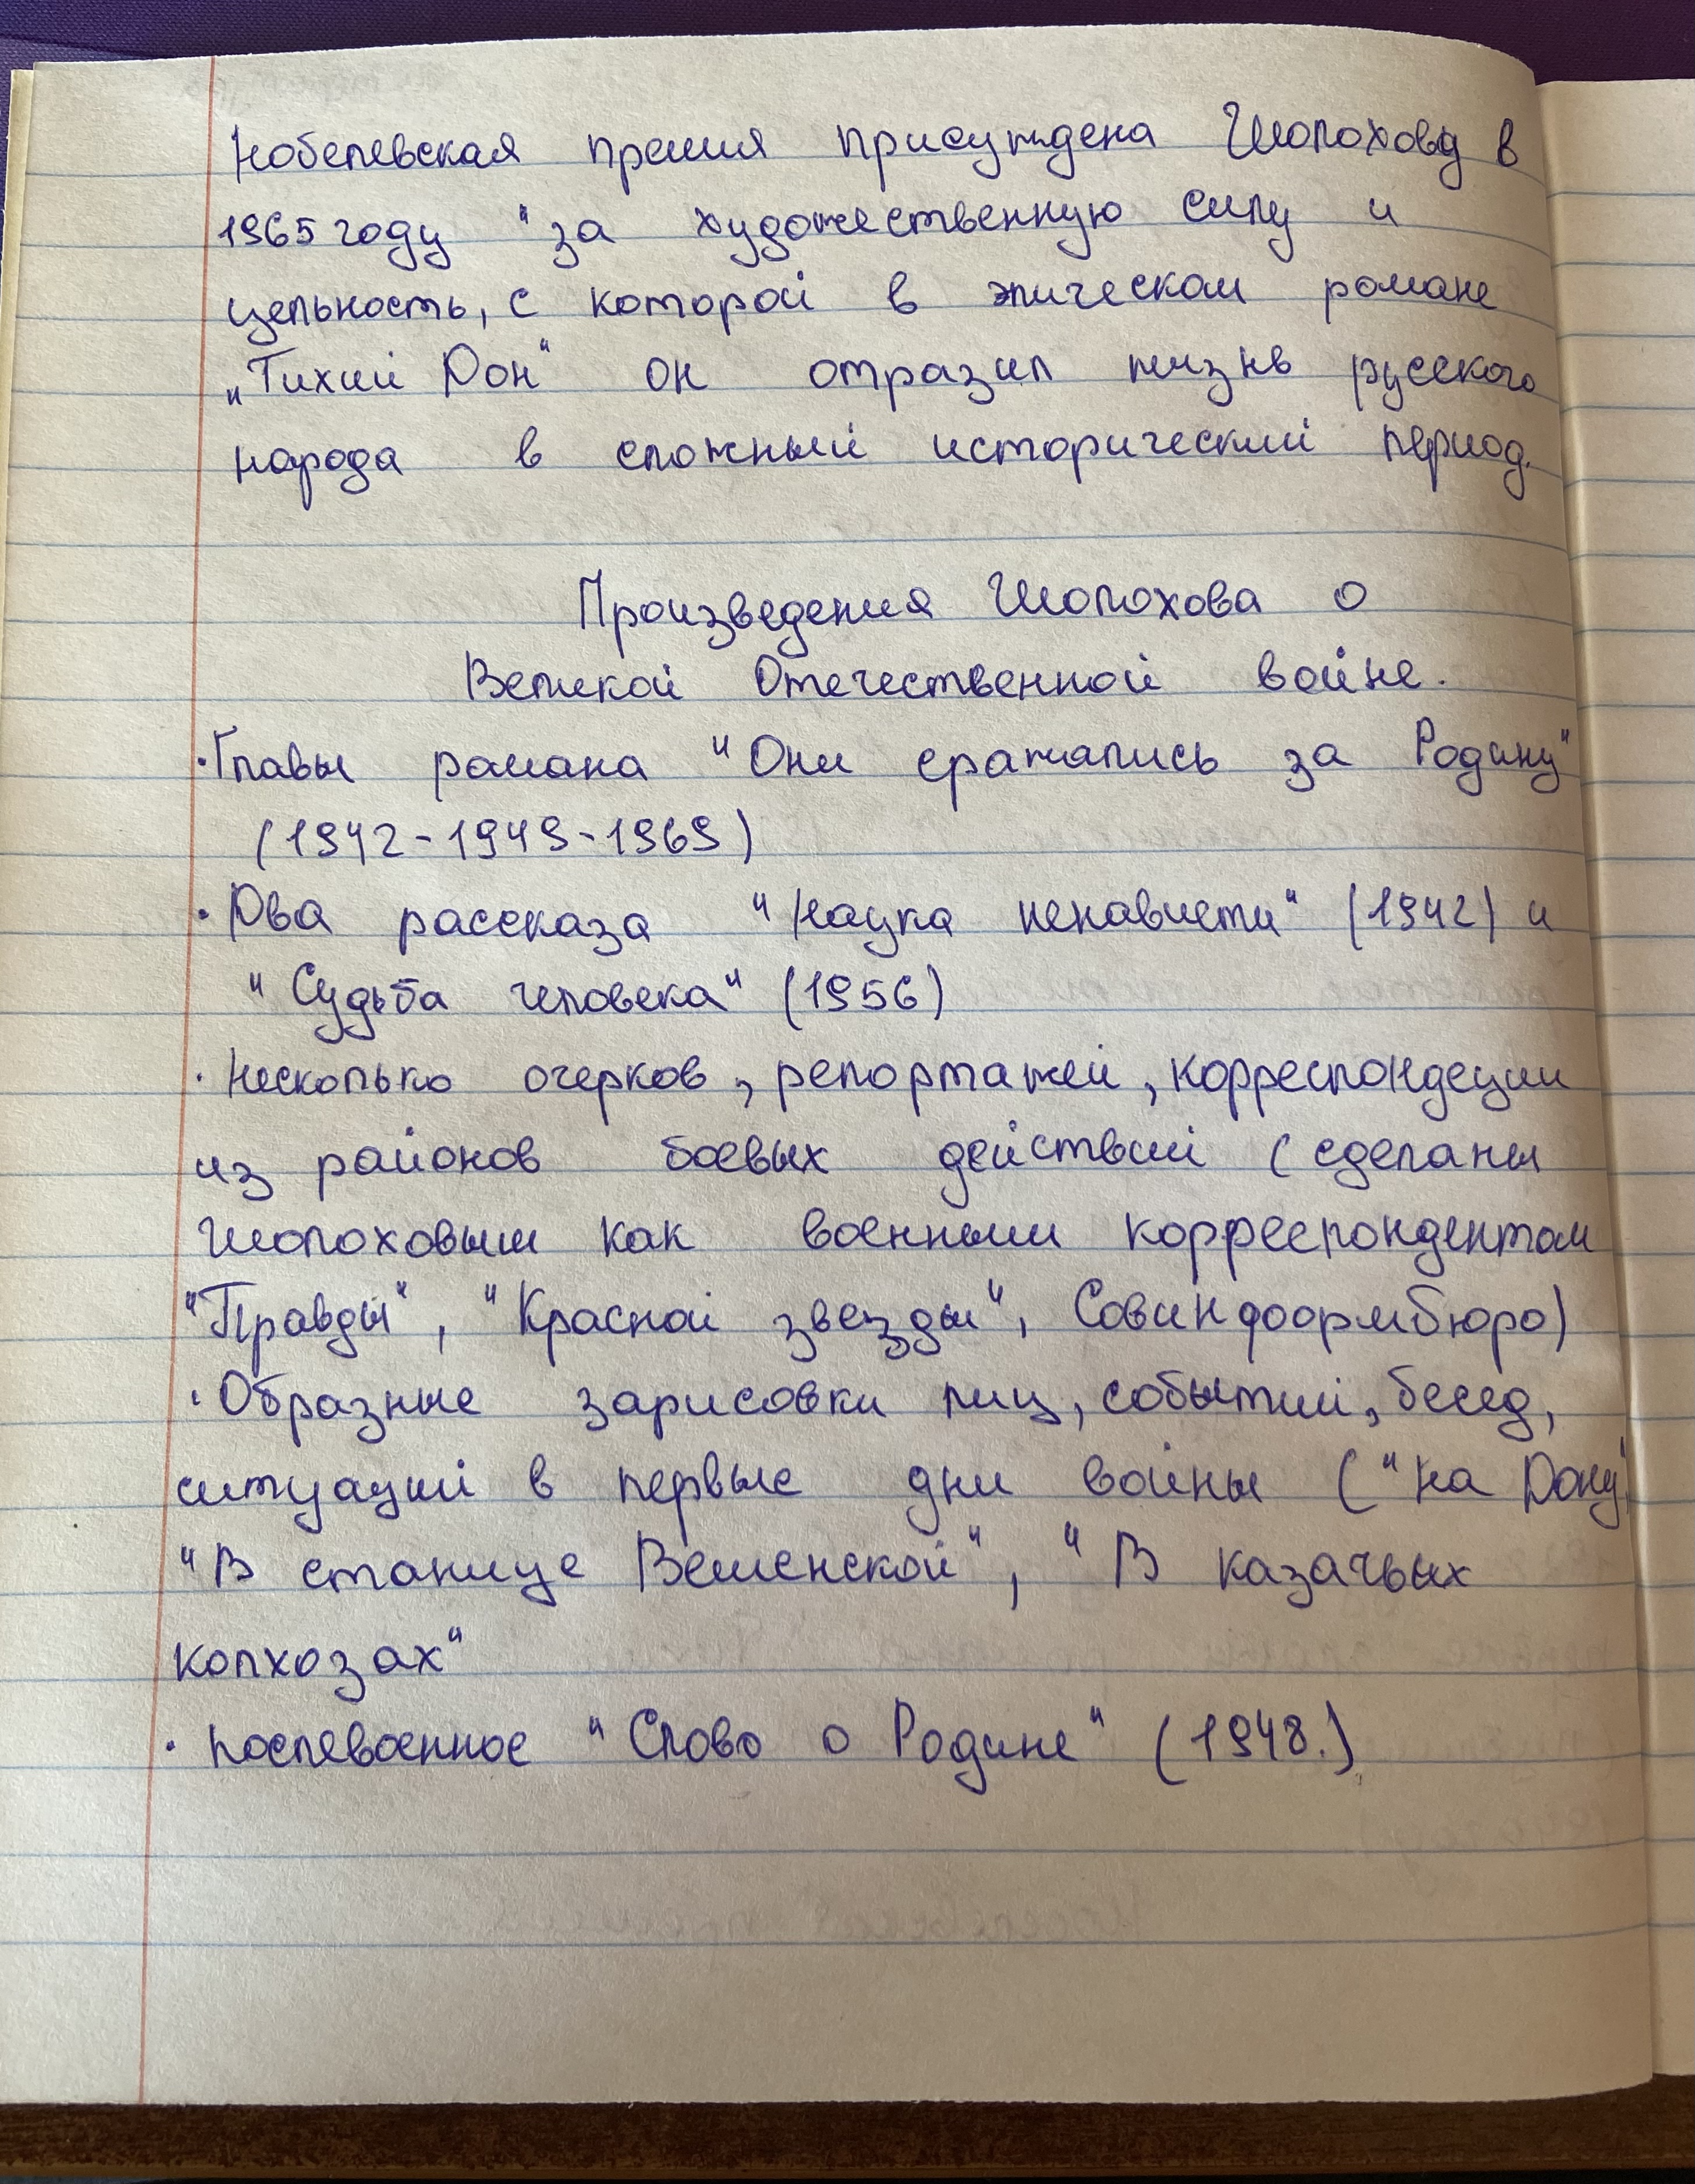 Нобелевская премия присуждена Шолохову в
1965 году "за художественную силу и
цельность, с которой в эпическом романе
„Тихий Дон“ он отразил жизнь русского
народа в сложный исторический период.
Произведения Шолохова о
Великой Отечественной войне.
·Главы романа "Они сражались за Родину"
(1942-1949-1969)
· Два рассказа "Наука ненависти" (1942) и
"Судьба человека" (1956)
· Несколько очерков, репортажей, корреспондеции
из районов боевых действий (сделаны
Шолоховым как военными корреспондентом
"Правды", "Красной звезды", Совинформбюро)
· Образные зарисовки лиц, событий, бесед,
ситуаций в первые дни войны ("На Дону",
"В станице Вешенской", "В казачьих
колхозах"
· Послевоенное "Слово о Родине" (1948.)